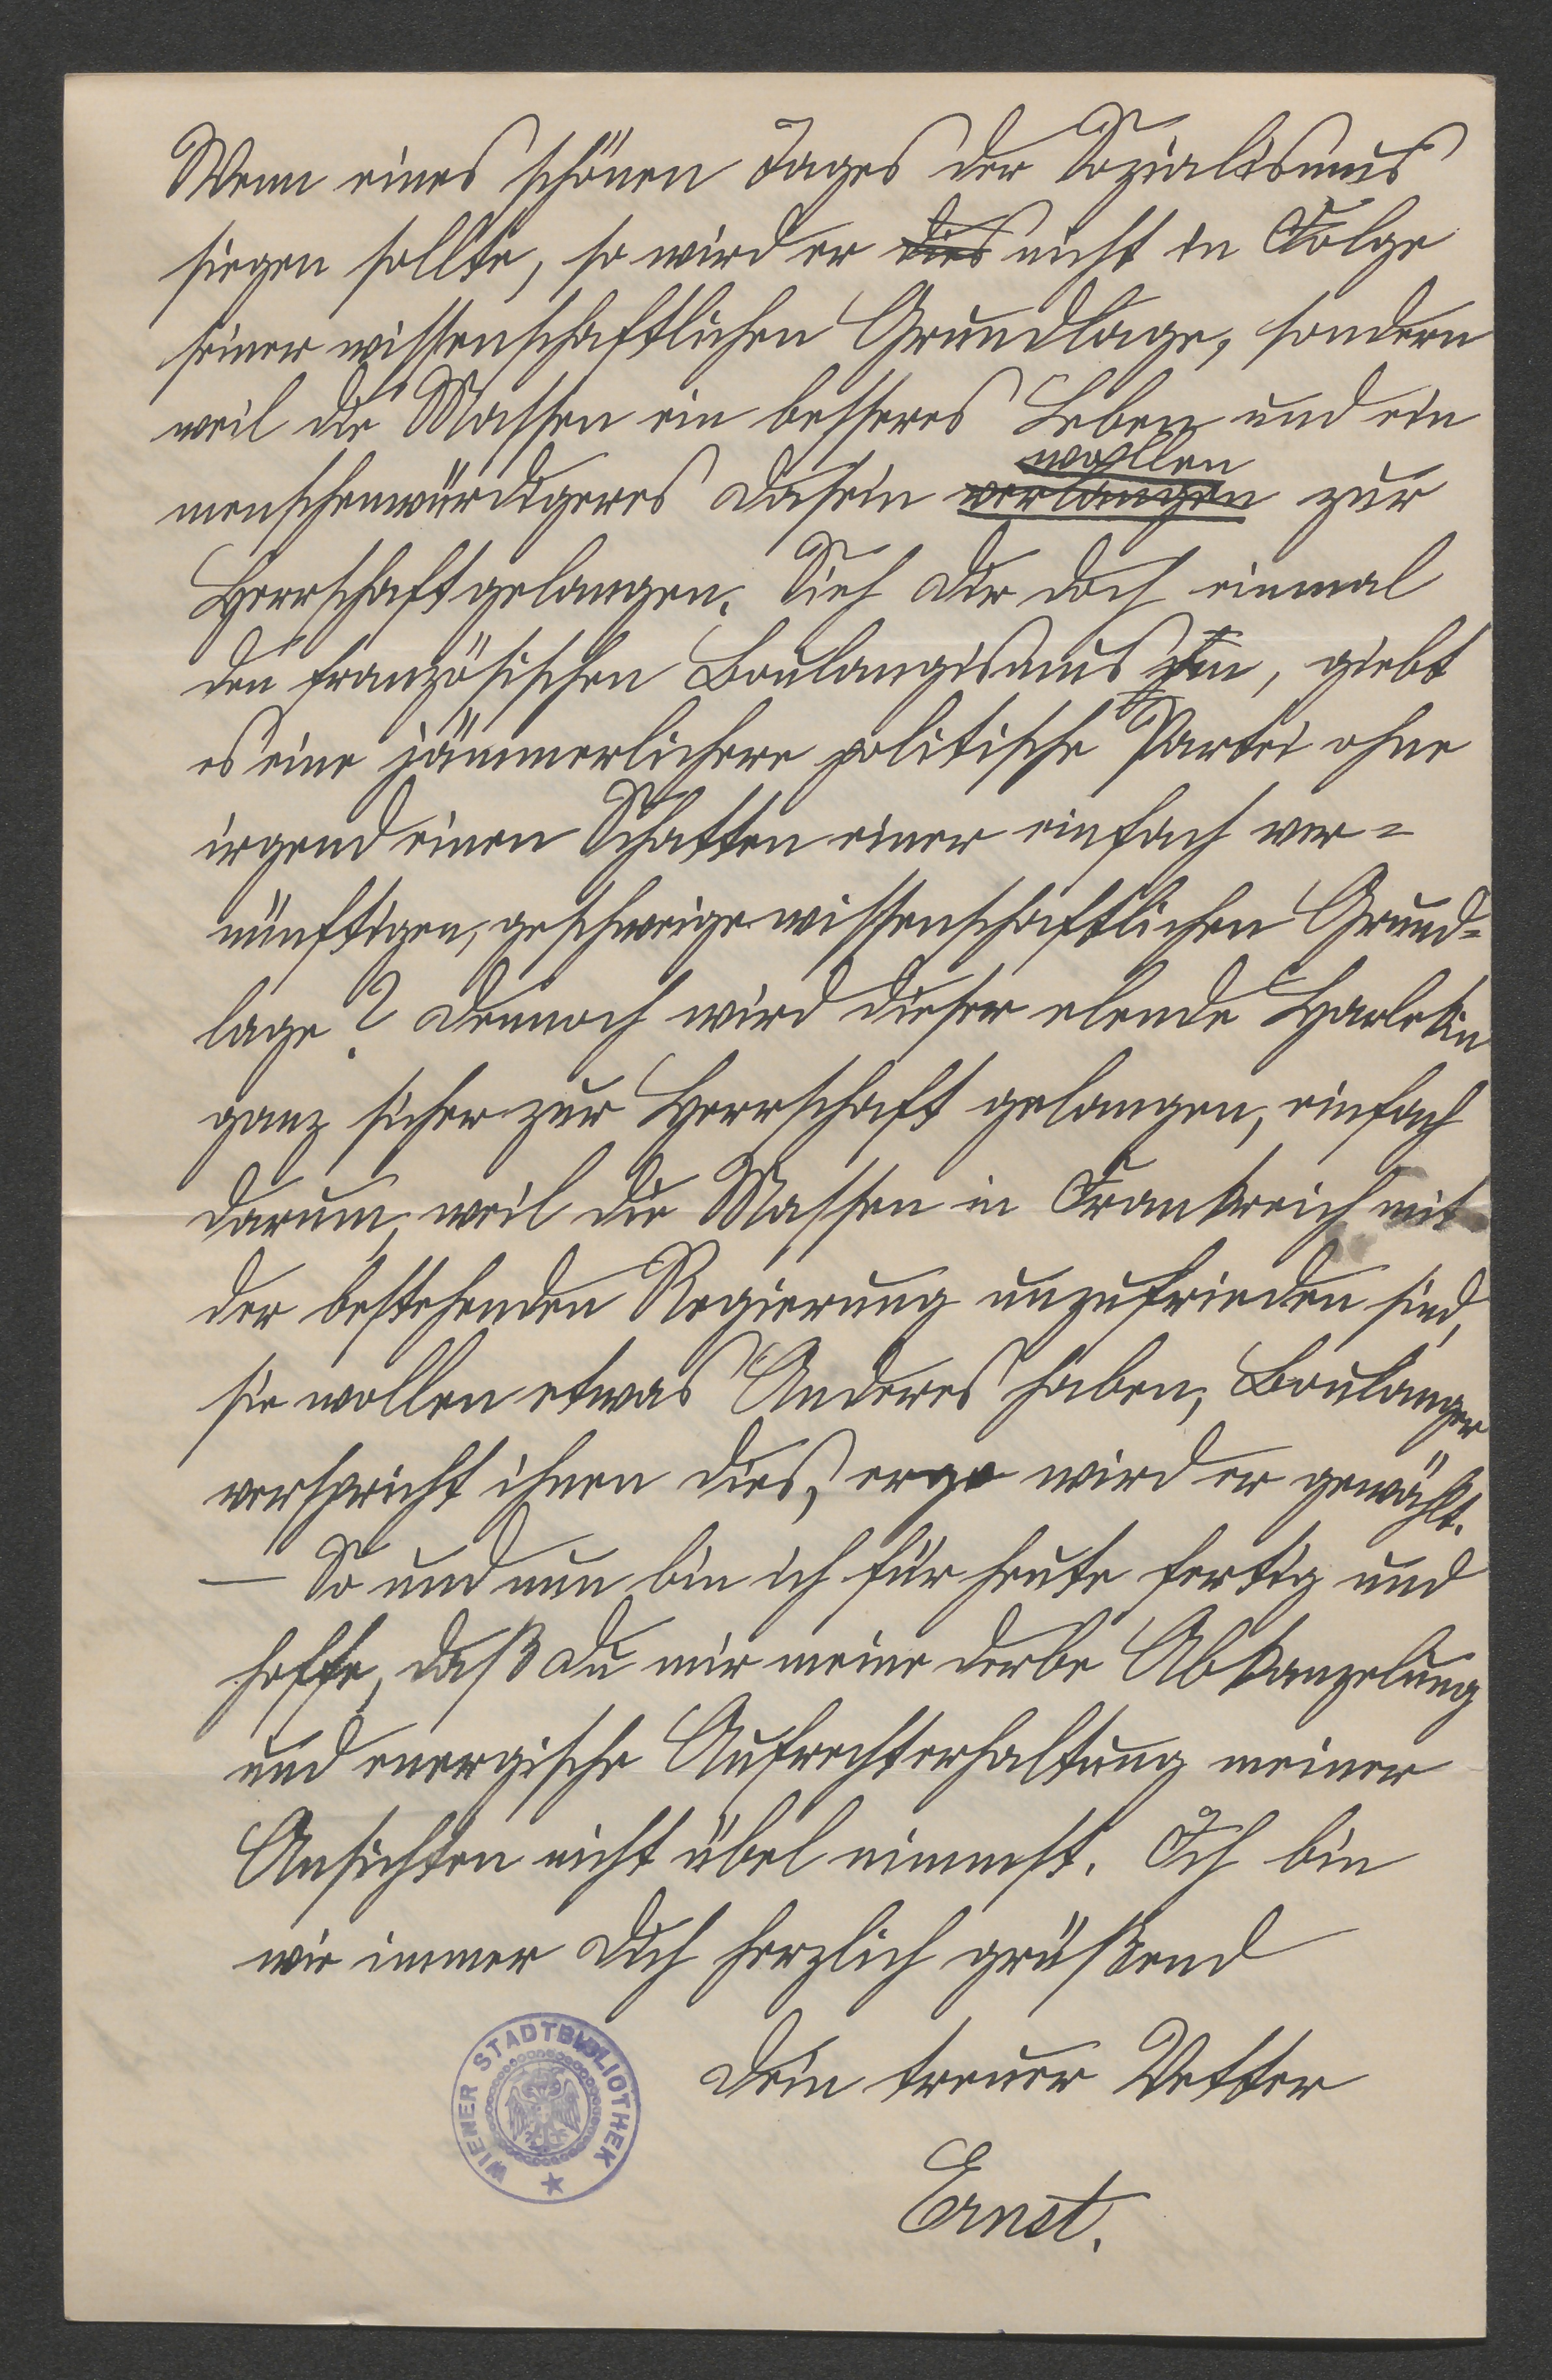 Wenn eines schönen Tages der Sozialismus
siegen sollte, so wird er dies nicht in Folge
seiner wissenschaftlichen Grundlage, sondern
weil die Massen ein besseres Leben und ein
wollen
menschenwürdigeres Dasein verlangen zur
Herrschaft gelangen. Sieh Dir doch einmal
den französischen Boulangismus an, giebt
es eine jämmerlichere politische Partei ohne
irgend einen Schatten einer einfach ver=
nünftigen, geschweige wissenschaftlichen Grund=
lage? Dennoch wird dieser elende Harlekin
ganz sicher zur Herrschaft gelangen, einfach
darum, weil die Massen in Frankreich mit
der bestehenden Regierung unzufrieden sind,
sie wollen etwas Anderes haben, Boulanger
verspricht ihnen dies, ergo wird er gewählt.
— So und nun bin ich für heute fertig und
hoffe, daß Du mir meine derbe Abkanzelung
und energische Aufrechterhaltung meiner
Ansichten nicht übel nimmst. Ich bin
wie immer Dich herzlich grüßend
Dein treuer Vetter
Ernst.
WIENER STADTBIBLIOTHEK